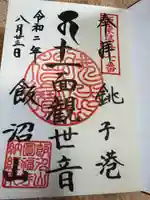 奉拝
銚子港
十一面觀世音
令和二年
八月廿三日
飯沼山